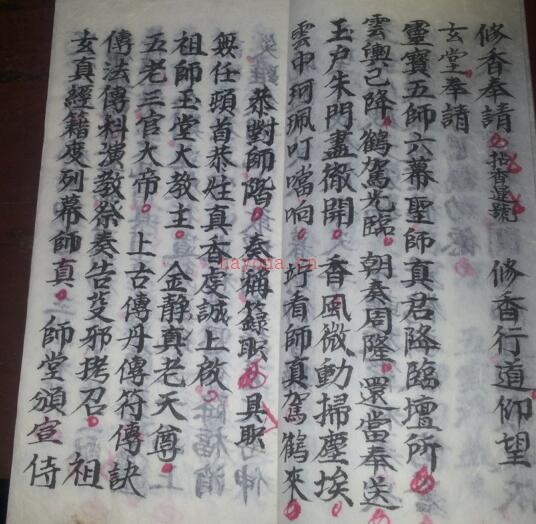 修香奉請 拈香運號 修香行道仰望
玄堂奉請
靈寶五師六幕聖師真君降臨壇所
雲輿已降 鶴駕光臨 朝奏周隆 還當奉送
玉户朱門盡徹開 香風微動掃塵埃
雲中珂珮叮噹响 竚看師真駕鶴來
恭對師階 奏稱籙職 具職
無任頓首恭炷真香虔誠上啟
祖師玉堂大教主 金静真老天尊
五老三官大帝 上古傳丹傳符傳訣
傳法傳科演教祭奏告 邪拷召 祖
玄真經籍度列幕師真 師堂頒宣侍
hayona.cn